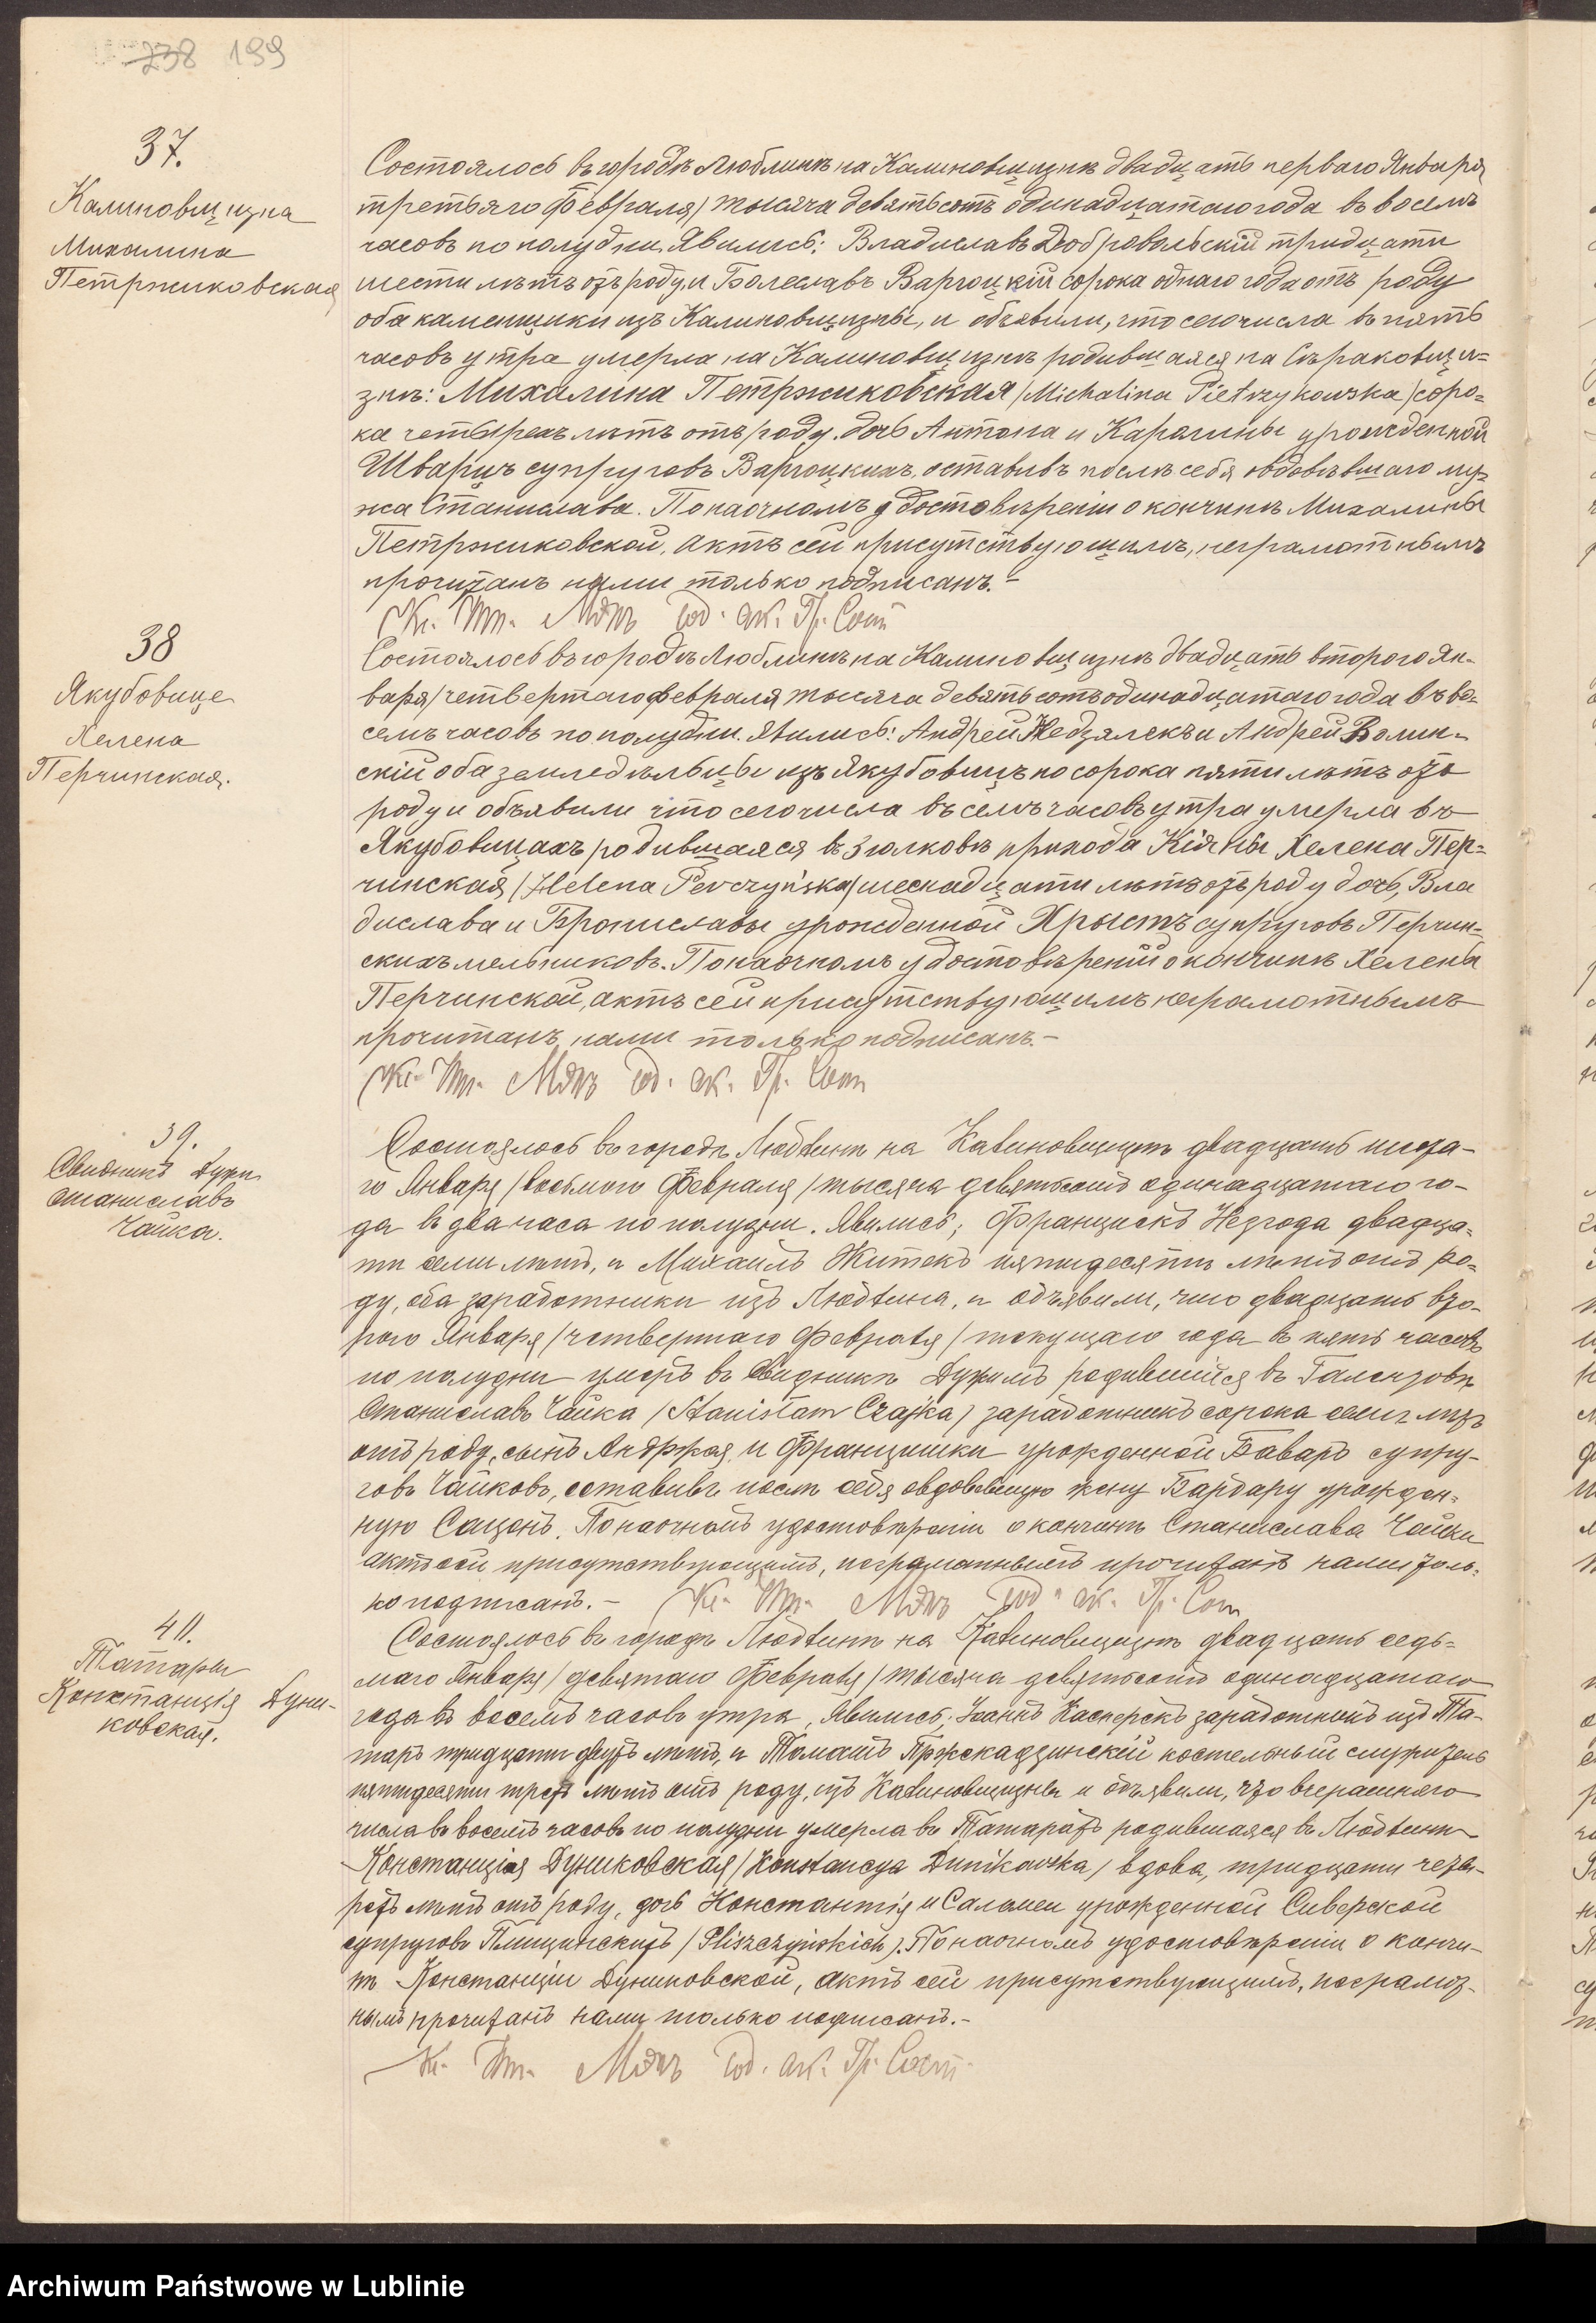 238 199
37.
Калиновщизна
Михалина
Петржиковская
Состоялось въ городѣ Люблинѣ на Калиновщизнѣ двадцать перваго Января
третьяго Февраля) тысяча девятьсотъ одинадцатаго года въ восемь
часовъ по полудни. Явились: Владиславъ Добровольскій тридцати
шести лѣтъ отъ роду, и Болеславъ Варгоцкій сорока однаго года отъ роду
оба каменщики изъ Калиновщизны, и объявили, что сего числа въ пять
часовъ утра умерла на Калиновщизнѣ родившаяся на Сѣраковщи-
знѣ: Михалина Петржиковская (Michalina Pietrzykowska) соро-
ка четырехъ лѣтъ отъ роду, дочь Антона и Каролины урожденной
Шварцъ супруговъ Варгоцкихъ, оставивъ послѣ себя овдовѣвшаго му-
жа Станислава. По наочномъ удостовѣреніи о кончинѣ Михалины
Петржиковской, Актъ сей присутствующимъ, неграмотнымъ
прочитанъ нами только подписанъ.-
Сод. ак. Гр. Сост
38
Якубовице
Хелена
Перчинская.
Состоялось въ городѣ Люблинѣ на Калиновщизнѣ двадцать второго Ян-
варя/четвертаго февраля тысяча девятьсотъ одинадцатаго года въ во-
семъ часовъ по полудни. Явились: Андрей Недзялекъ и Андрей Волин-
скій оба земледѣльцы изъ Якубовицъ по сорока пяти лѣтъ отъ
роду и объявили что сего числа въ семь часовъ утра умерла въ
Якубовицахъ родившаяся въ Зюлковѣ прихода Кіяны Хелена Пер-
чинская (Helena Perczyńska) шеснадцати лѣтъ отъ роду дочь, Вла
дислава и Брониславы урожденной Хрыстъ супруговъ Перчин-
скихъ мельниковъ. По наочномъ удостовѣреній о кончинѣ Хелены
Перчинской, актъ сей присутствующимъ неграмотнымъ
прочитанъ, нами только подписанъ.-
Сод. ак. Гр. Сост
39.
Свидникъ Дужи
Станиславъ
Чайка.
Состоялось въ городѣ Люблинѣ на Калиновщизнѣ двадцать шеста-
го Января /восьмого Февраля/ тысяча девятьсотъ одинадцатаго го-
да въ два часа по полудни. Явились; Францискъ Незгода двадца-
ти семи лѣтъ, и Михаилъ Житекъ пятидесяти лѣтъ отъ ро-
ду, оба заработники изъ Люблина, и объявили, что двадцать вто-
рого Января /четвертаго Февраля/ текущаго года въ пять часовъ
по полудни умеръ въ Свидникѣ Дужимъ родившійся въ Галензовѣ
Станиславъ Чайка /Stanisław Czajka/ заработникъ сорока семи лѣтъ
отъ роду, сынъ Анджея и Францишки урожденной Баваръ супру-
говъ Чайковъ, оставивъ послѣ себя овдовевшую жену Барбару урожден-
ную Саценъ. По наочномъ удостовѣреніи о кончинѣ Станислава Чайки
актъ сей присутствующимъ, неграмотнымъ прочитанъ нами толь-
ко подписанъ.- Сод. ак. Гр. Сост
40.
Татары
Констанція Дуни-
ковская.
Состоялось въ городѣ Люблинѣ на Калиновщизнѣ двадцать седь-
маго Января/девятаго Февраля/тысяча девятьсотъ одинадцатаго
года въ восемь часовъ утра, Явились; Іоаннъ Касперекъ заработникъ изъ Та-
таръ тридцати двухъ лѣтъ, и Томашъ Пржекадзинскій костельный служитель
пятидесяти трехъ лѣтъ отъ роду, изъ Калиновщизны и объявили, что вчерашняго
числа въ восемь часовъ по полудни умерла въ Татарахъ родившаяся въ Люблинѣ
Констанція Дуниковская /Konstancya Dunikowska/ вдова, тридцати четы-
рехъ лѣтъ отъ роду, дочь Константія и Саломеи урожденной Сиверской
супруговъ Плищинскихъ /Pliszczyńskich/. По наочномъ удостовѣреніи о кончи-
нѣ Констанціи Дуниковской, актъ сей присутствующимъ, неграмот-
нымъ прочитанъ нами только подписанъ.-
Сод. ак. Гр. Сост.
Archiwum Państwowe w Lublinie